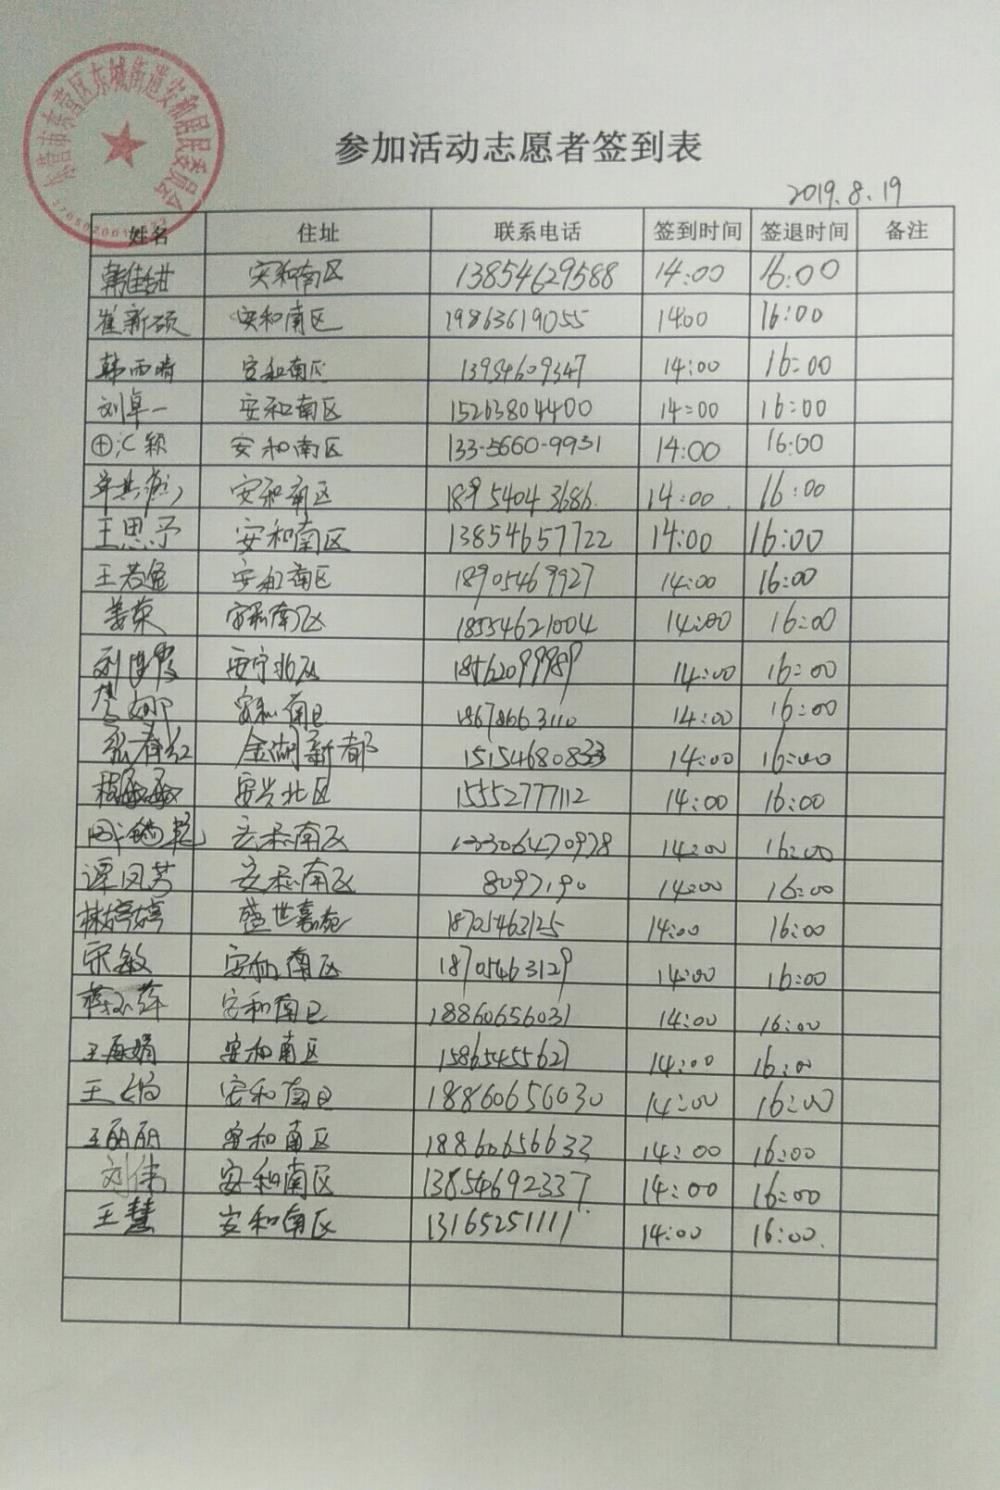 东营市东营区东城街道安和居民委员会
参加活动志愿者签到表
2019.8.19
姓名 住址 联系电话 签到时间 签退时间 备注
韩佳甜 安和南区 13854629588 14:00 16:00
崔新硕 安和南区 19863619055 14:00 16:00
韩雨晴 安和南区 14:00 16:00
刘卓一 安和南区 15263804400 14:00 16:00
安和南区 133-5660-9931 14:00 16:00
安和南区 14:00 16:00
王思予 安和南区 13854657722 14:00 16:00
安和南区 18905469927 14:00 16:00
姜荣 安和南区 18554621004 14:00 16:00
安宁北区 14:00 16:00
安和南区 18678663110 14:00 16:00
张春红 金湖新都 15154680833 14:00 16:00
安兴北区 15552777112 14:00 16:00
安和南区 14:00 16:00
谭凤芳 安和南区 8097190 14:00 16:00
林婷婷 盛世嘉苑 18705463125 14:00 16:00
宋敏 安和南区 18705463129 14:00 16:00
安和南区 18860656031 14:00 16:00
安和南区 15865455627 14:00 16:00
安和南区 18860656030 14:00 16:00
王丽丽 安和南区 18860656633 14:00 16:00
刘伟 安和南区 13854692337 14:00 16:00
王慧 安和南区 13165251111 14:00 16:00